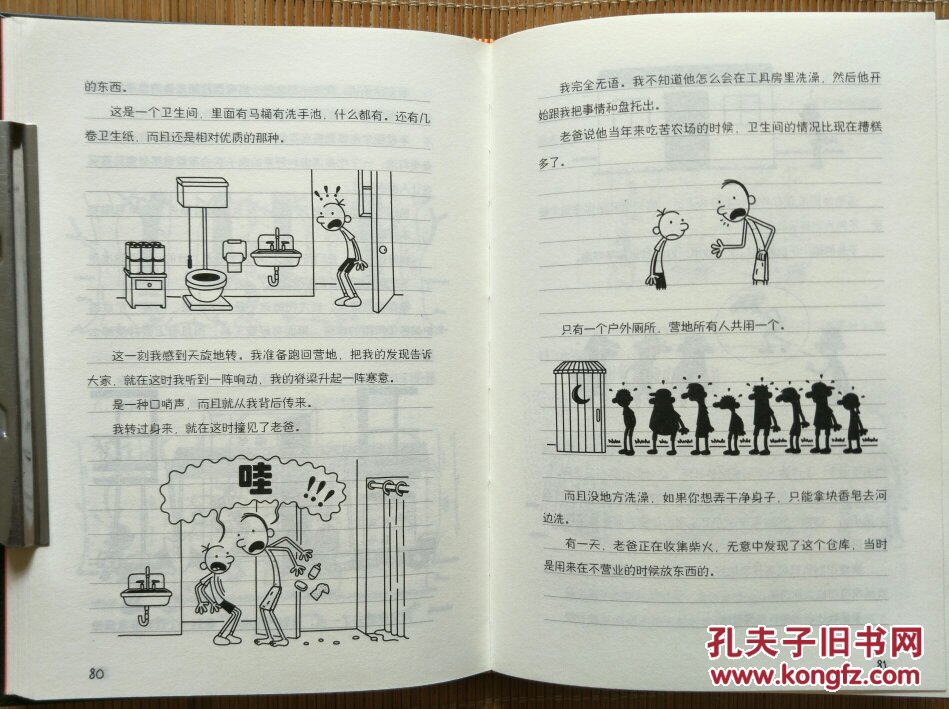 的东西。
这是一个卫生间，里面有马桶有洗手池，什么都有。还有几
卷卫生纸，而且还是相对优质的那种。
这一刻我感到天旋地转。我准备跑回营地，把我的发现告诉
大家，就在这时我听到一阵响动，我的脊梁升起一阵寒意。
是一种口哨声，而且就从我背后传来。
我转过身来，就在这时撞见了老爸。
哇
!!!
80
我完全无语。我不知道他怎么会在工具房里洗澡，然后他开
始跟我把事情和盘托出。
老爸说他当年来吃苦农场的时候，卫生间的情况比现在糟糕
多了。
只有一个户外厕所，营地所有人共用一个。
而且没地方洗澡，如果你想弄干净身子，只能拿块香皂去河
边洗。
有一天，老爸正在收集柴火，无意中发现了这个仓库，当时
是用来在不营业的时候放东西的。
81
孔夫子旧书网
www.kongfz.com